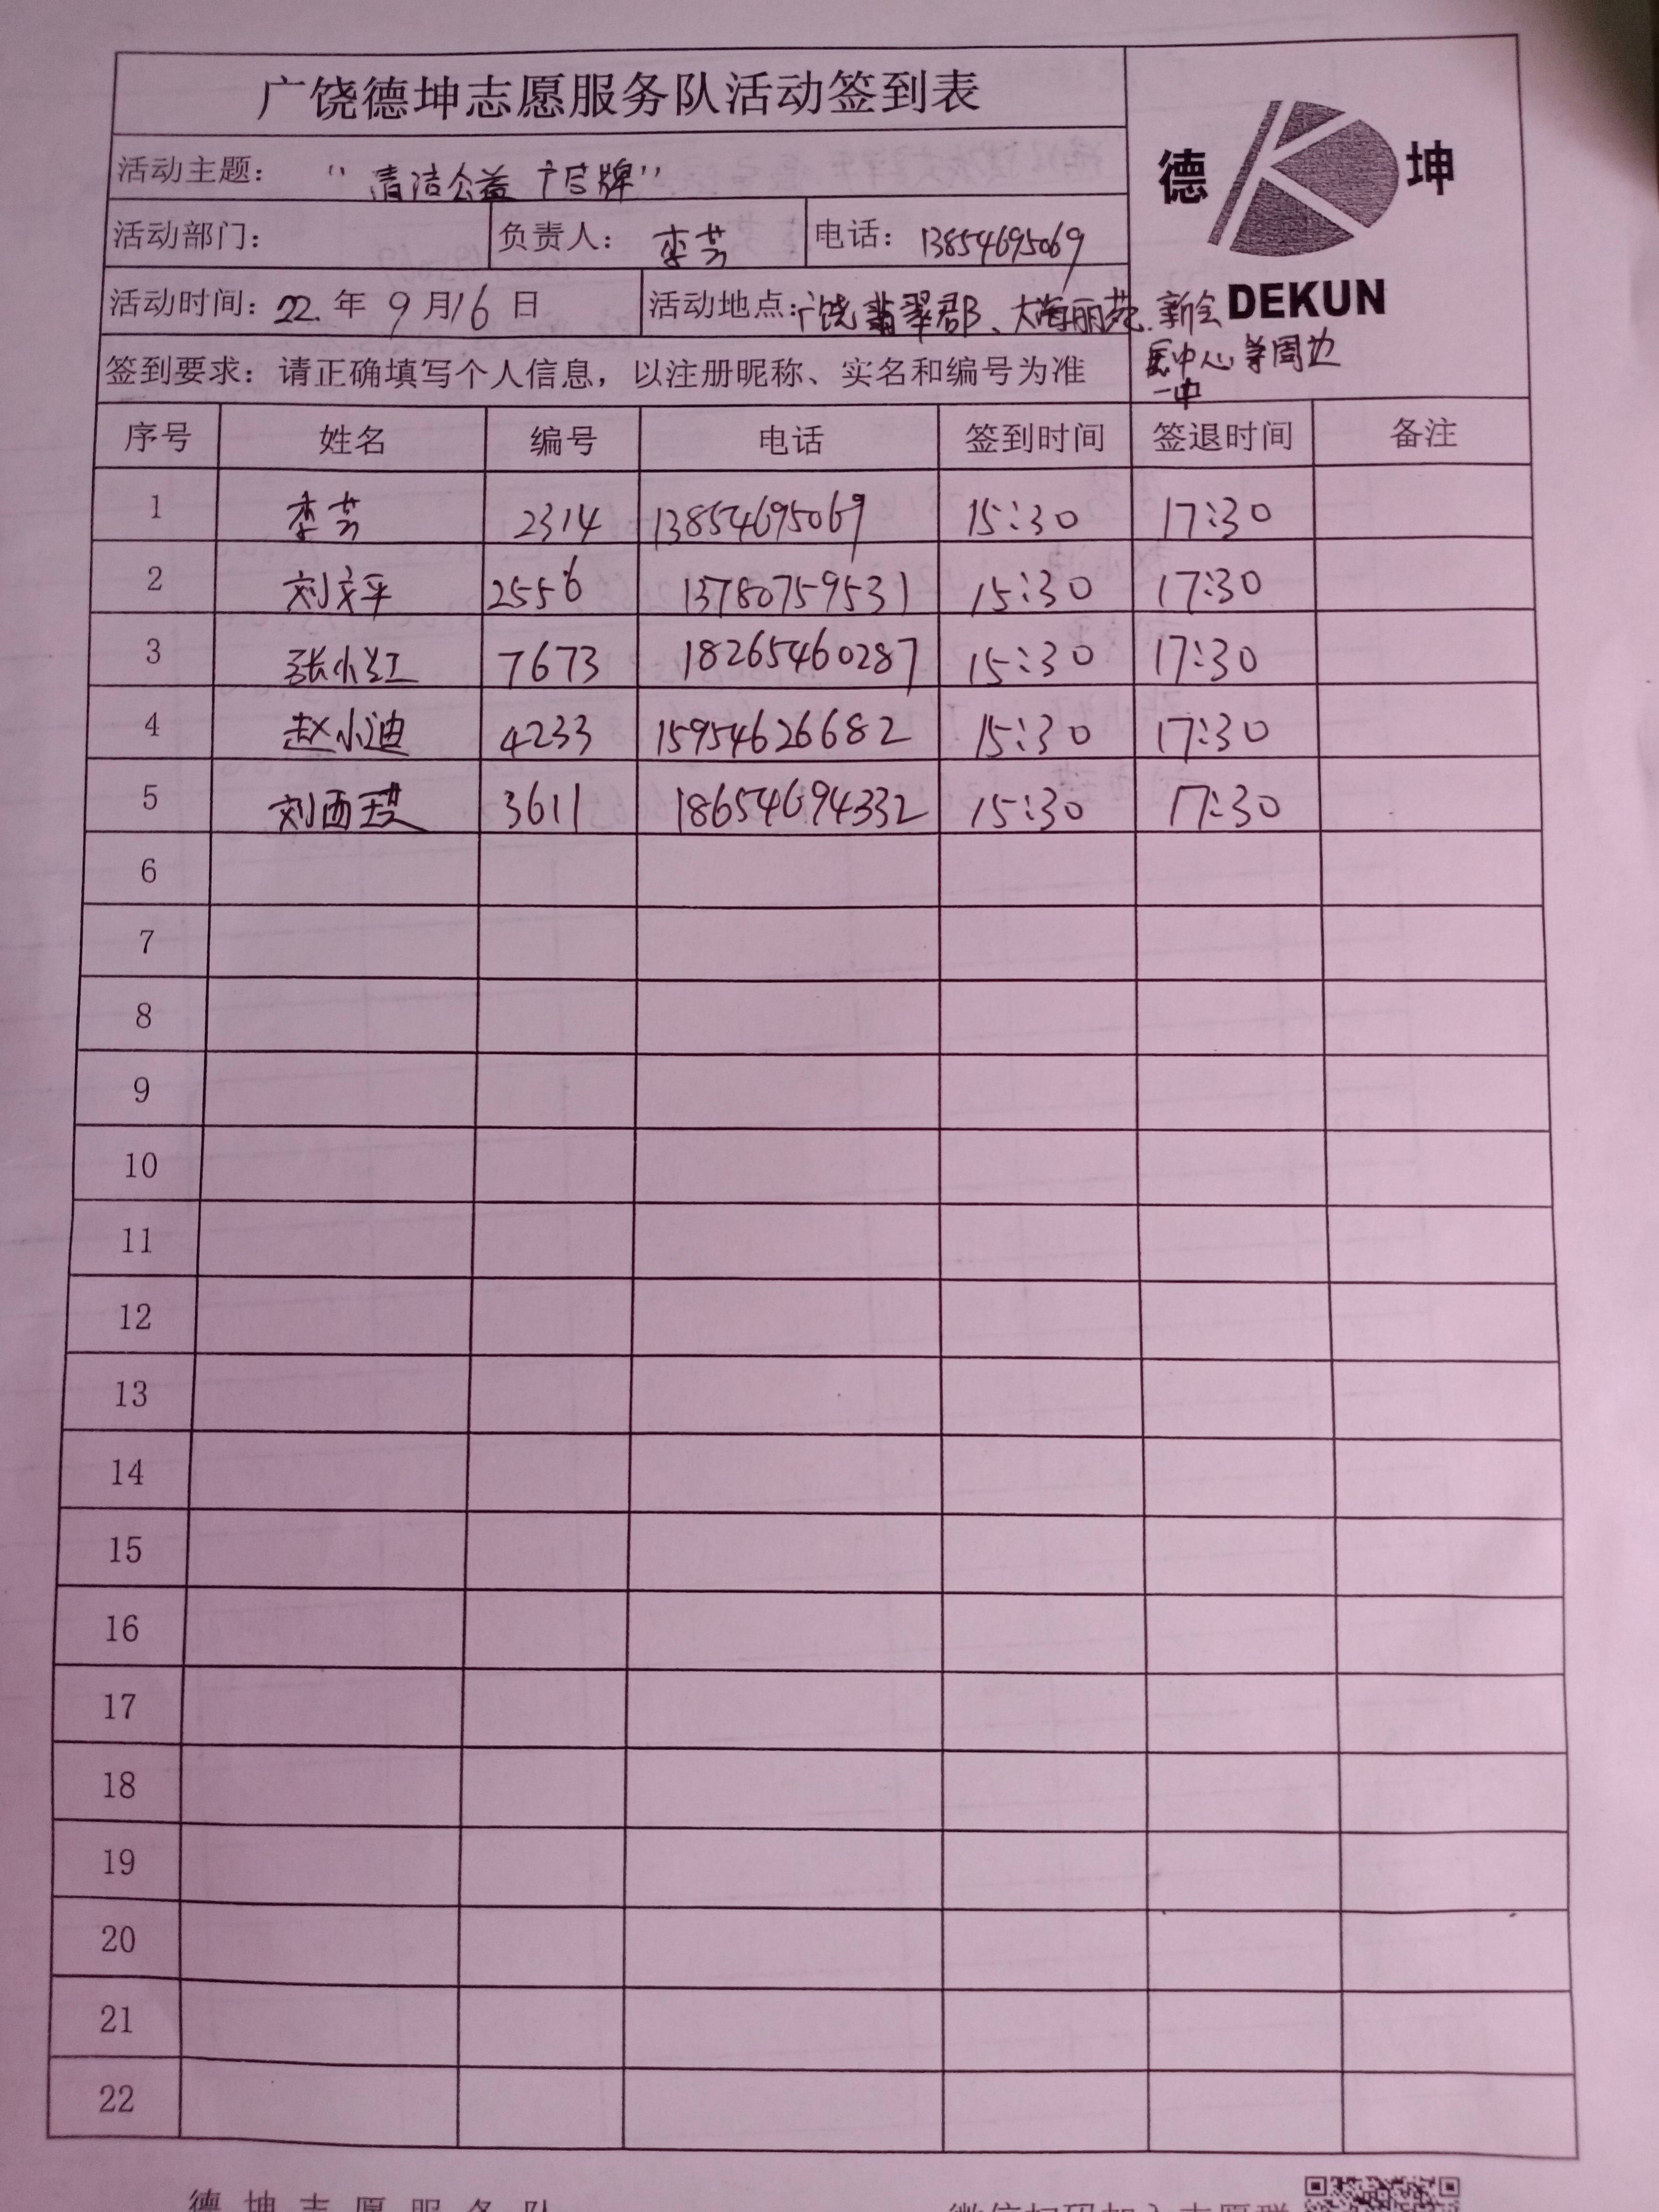 广饶德坤志愿服务队活动签到表
德 坤
DEKUN
活动主题： “清洁公益广告牌”
活动部门： 负责人： 李芳 电话： 13854695069
活动时间：22.年 9月16日 活动地点：广饶翡翠郡、大海丽苑.新会
展中心等周边
一中
签到要求：请正确填写个人信息，以注册昵称、实名和编号为准
序号 姓名 编号 电话 签到时间 签退时间 备注
1 李芳 2314 13854695069 15:30 17:30
2 刘文平 2556 13780759531 15:30 17:30
3 张小红 7673 18265460287 15:30 17:30
4 赵小迪 4233 15954626682 15:30 17:30
5 刘西琪 3611 18654694332 15:30 17:30
6
7
8
9
10
11
12
13
14
15
16
17
18
19
20
21
22
德坤志愿服务队 微信扫码加入志愿群